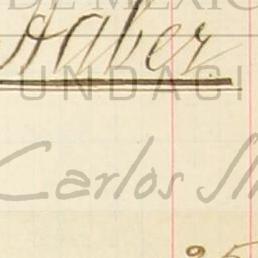 DE MÉXICO
Haber
FUNDACI
Carlos Sli
25